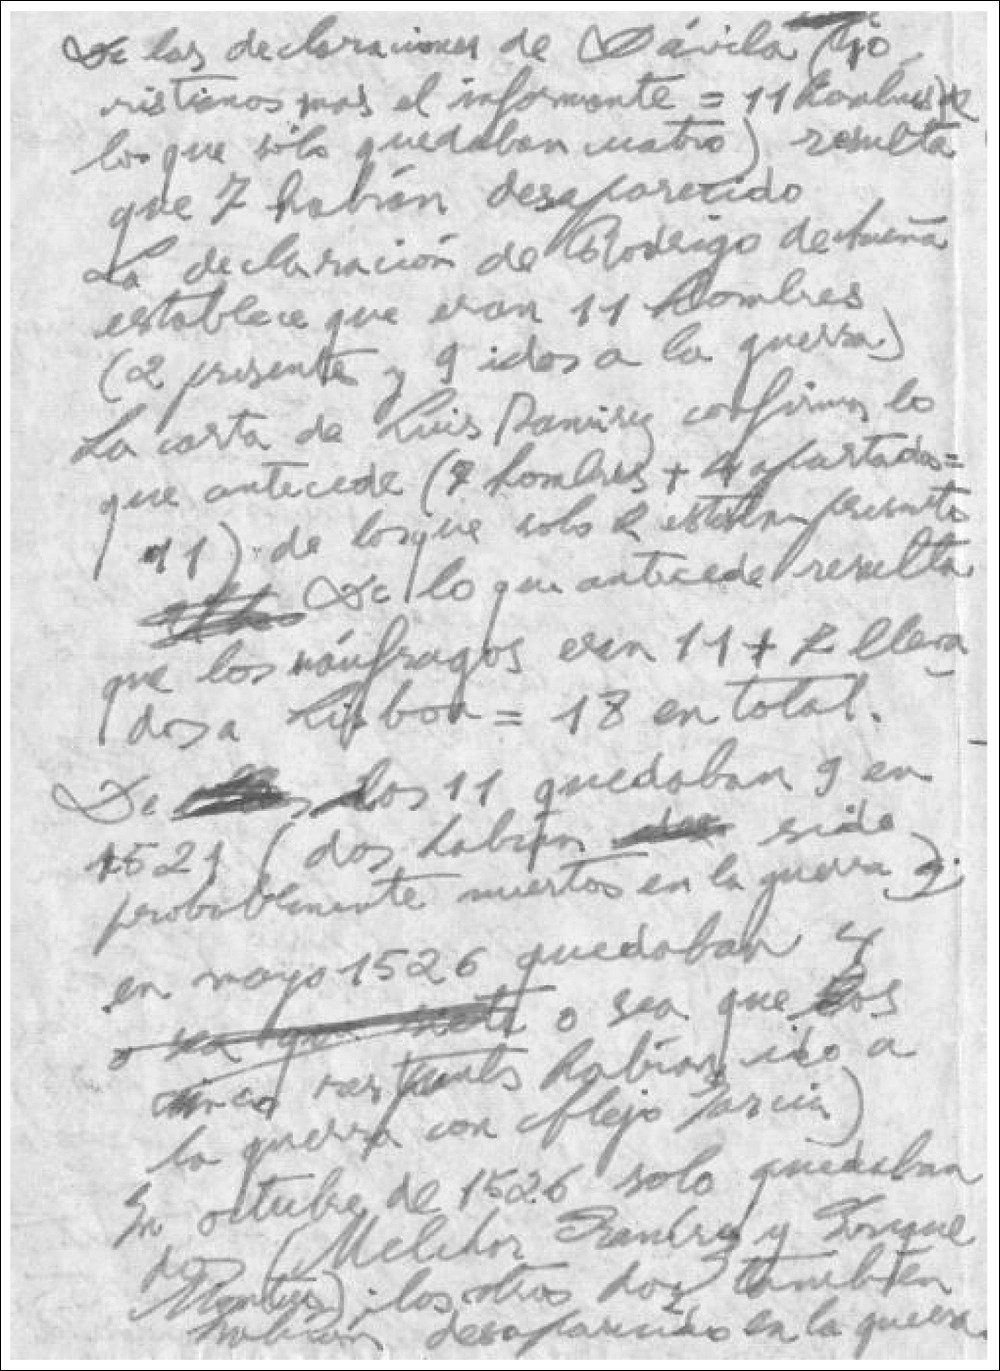 De las declaraciones de Dávila (10
cristianos mas el informante = 11 hombres) de
los que sólo quedaban cuatro) resulta
que 7 habían desaparecido
La declaración de Rodrigo de Acuña
establece que eran 11 hombres
(2 presentes y 9 idos a la guerra)
La carta de Luis Ramirez confirma lo
que antecede (7 hombres + 4 apartados =
11) de los que solo 2 estaban presentes
De lo que antecede resulta
que los náufragos eran 11 + 7 lleva
dos a Lisboa = 18 en total.
De los 11 quedaban 9 en
1521 (dos habían sido
probablemente muertos en la guerra);
en mayo 1526 quedaban 4
o sea que siete o sea que los
cinco restantes habían ido a
la guerra con Alejo Garcia)
En octubre de 1526 solo quedaban
dos (Melchor Ramirez y Enrique
Montes); los otros dos también
habían desaparecido en la guerra.